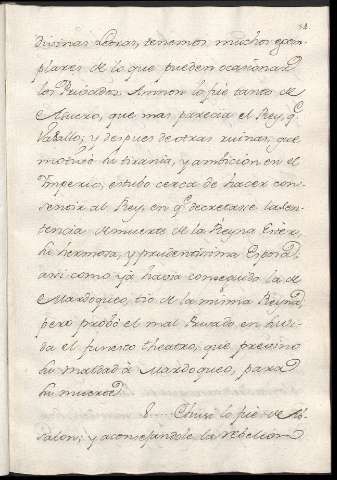 divinas Letras, tenemos muchos exem-
plares de lo que pueden ocasionar
los Privados. Amnon lo fue tanto de
Asuero, que mas parecia el Rey, q.e
Vasallo; y despues de otras ruinas, que
motivó su tirania, y ambicion en el
Imperio, estubo cerca de hacer con-
sentir al Rey, en q.e decretase la sen-
tencia de muerte de la Reyna Ester,
su hermosa, y prudentisima Esposa,
asi como yá havia conseguido la de
Mardoqueo, tio de la misma Reyna,
pero probó el mal Privado en su vi-
da el funesto theatro, que previno
su maldad à Mardoqueo, para
su muerte.
8.... Chusi lo fue de Ab-
salon; y aconsejandole la rebelion